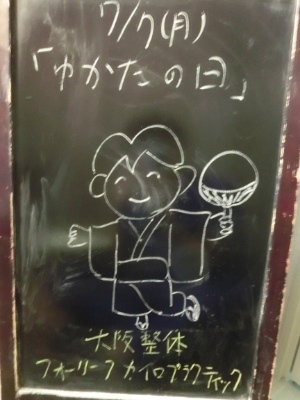 7/7(月)
「ゆかたの日」
大阪整体
フォーリーフカイロプラクティック